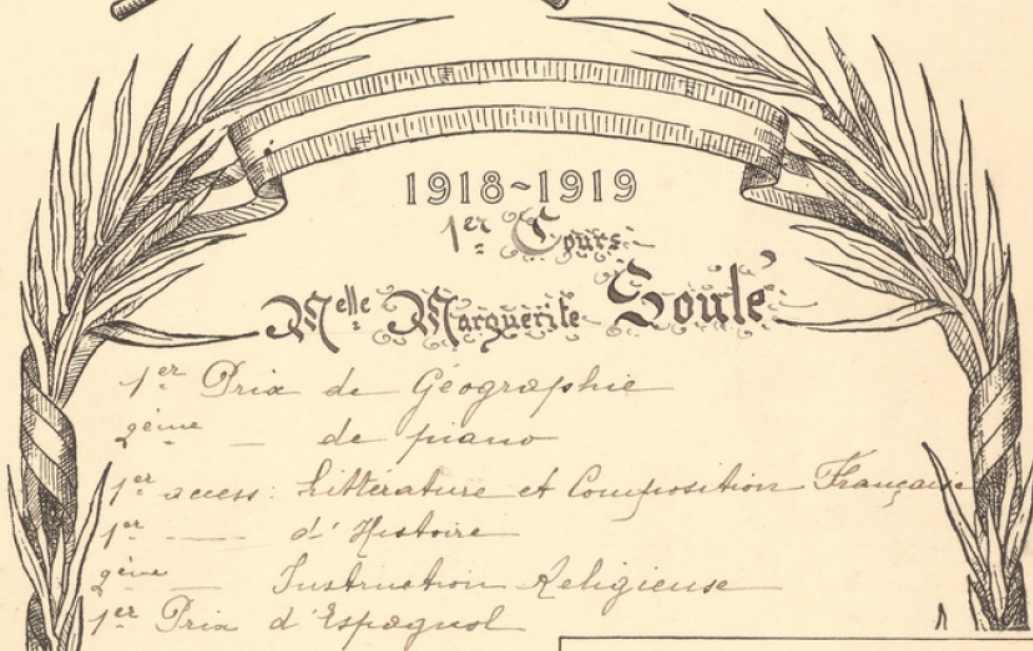 1918~1919
1er Cours
Melle Marguerite Soulé
1er Prix de Géographie
2ème — de piano
1er access: Littérature et Composition Française
1er —— d'Histoire
2ème — Instruction Religieuse
1er Prix d'Espagnol